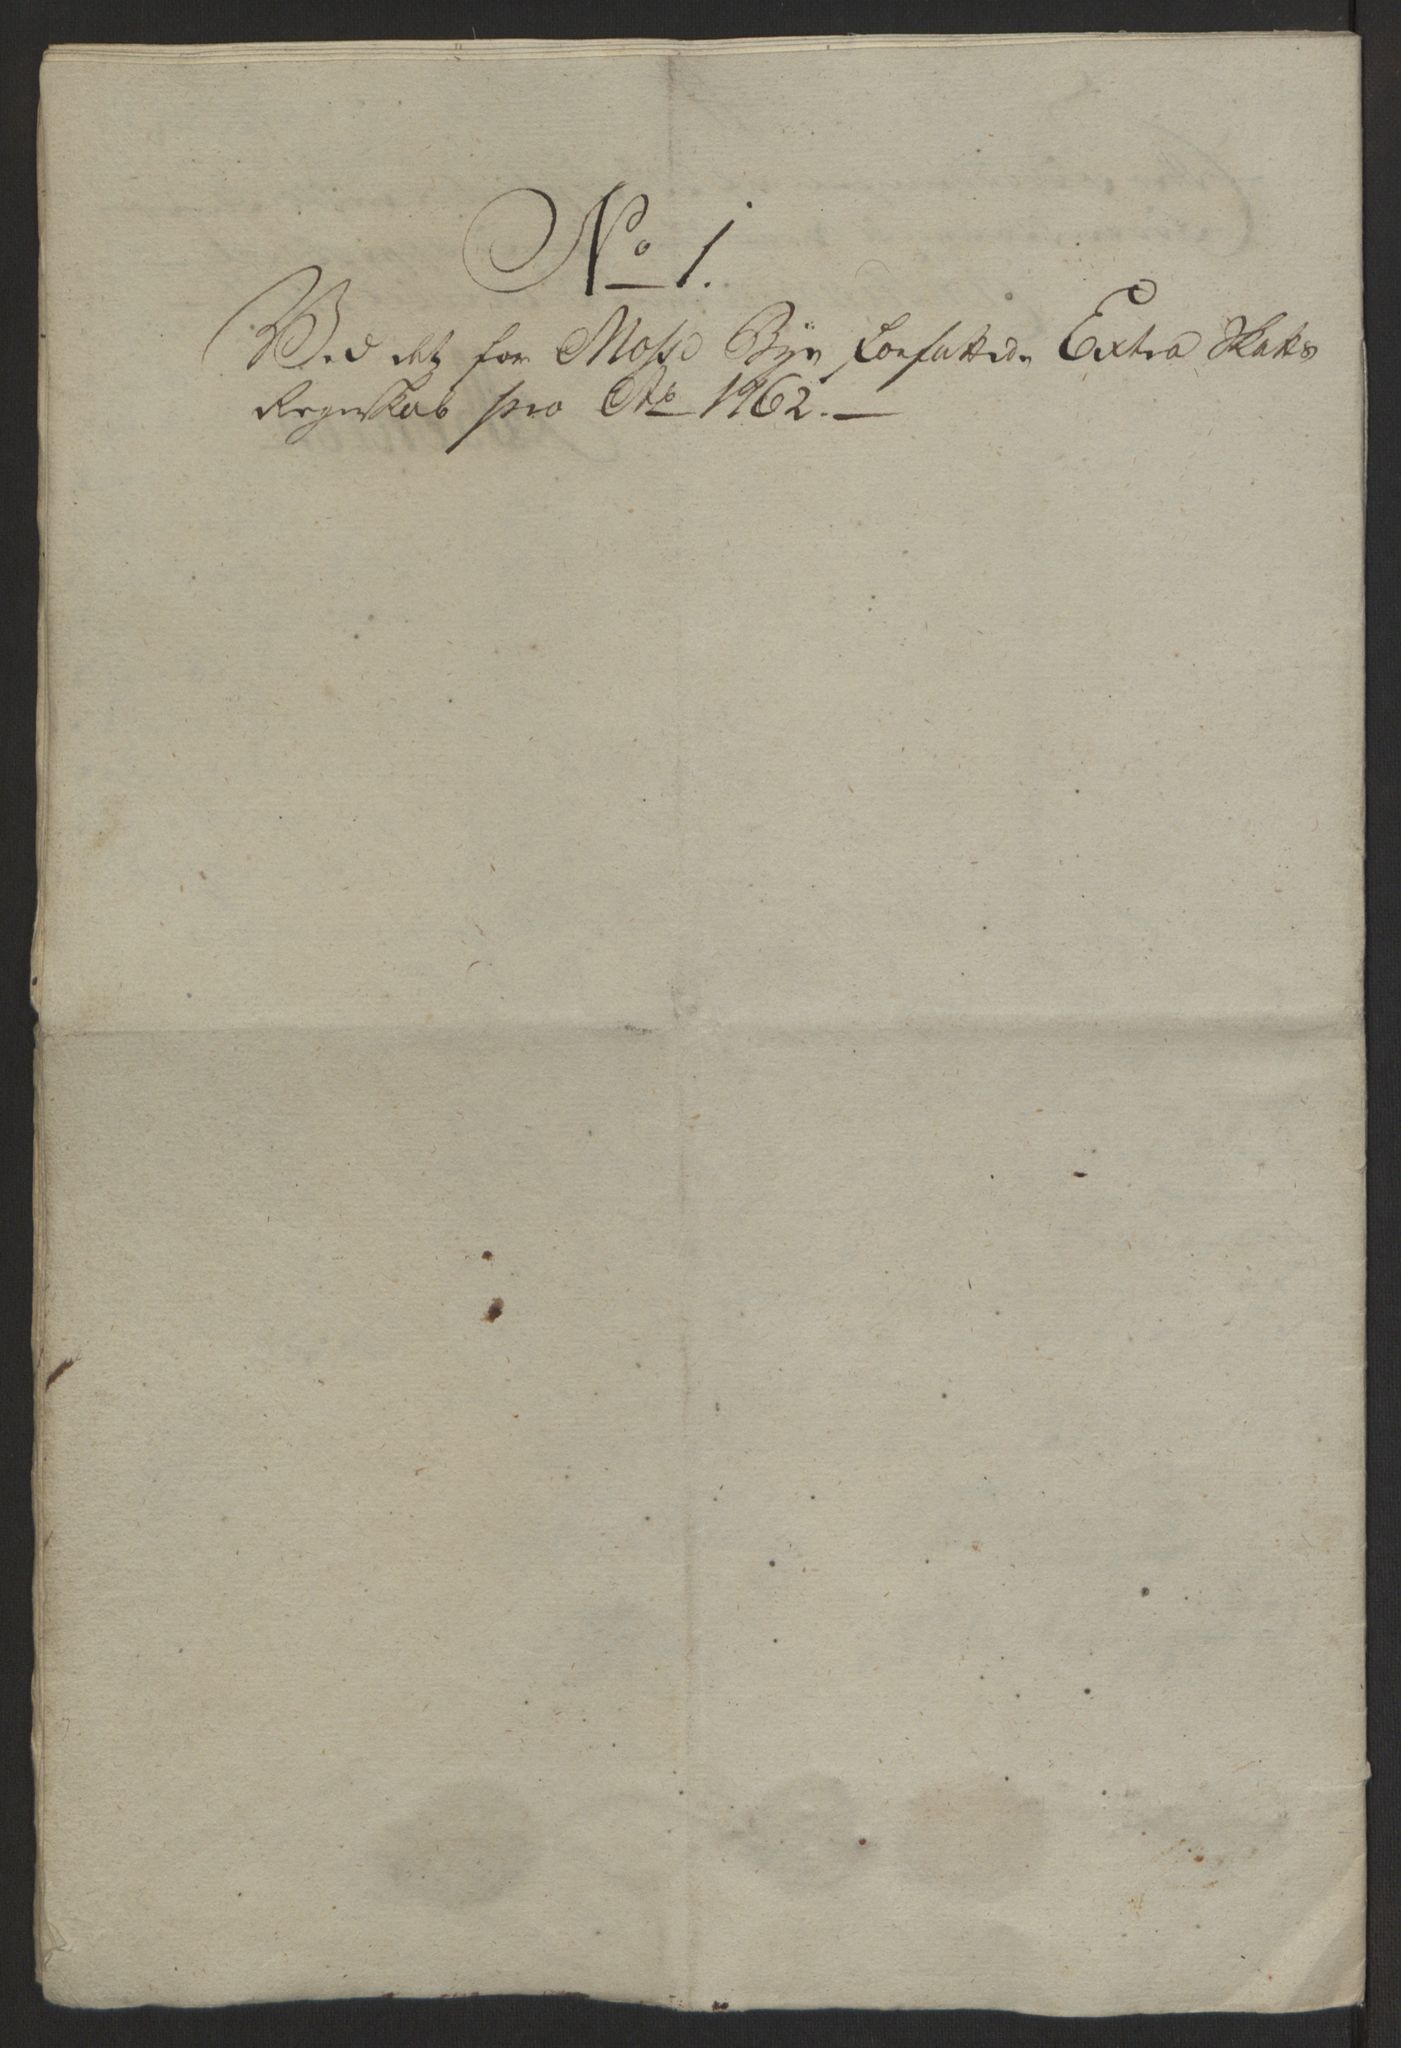 No 1.
Ved det for Moss Bye forfattede Extra Skatts
Regnskab pro Ao 1762.